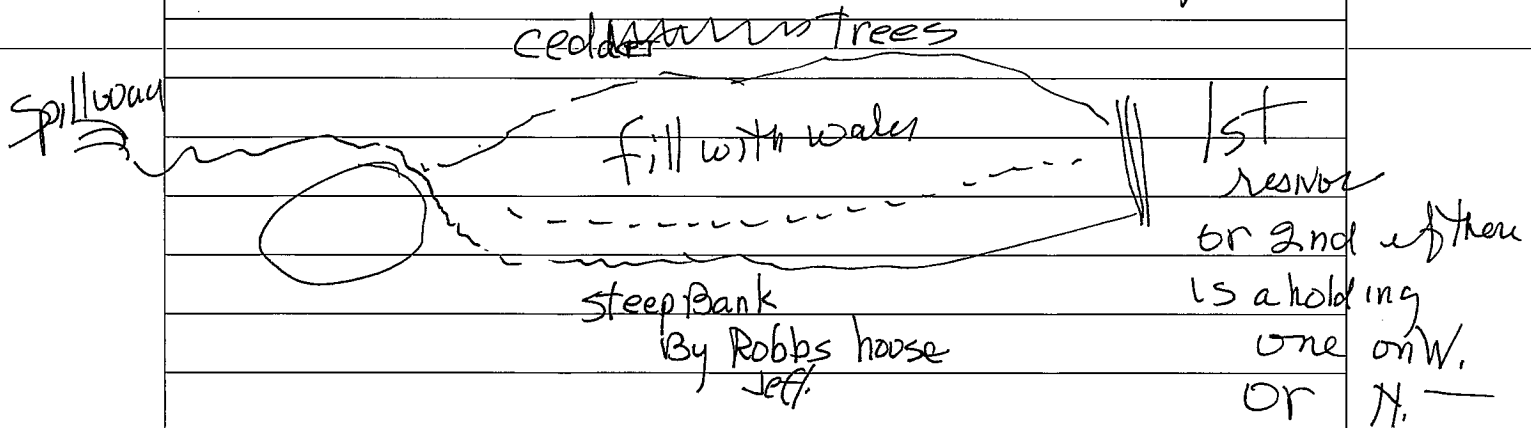 cedder trees
Spillway
fill with water
1st
resivor
or 2nd if there
is a holding
one on W.
or N. —
steep Bank
By Robbs house
Jeff.